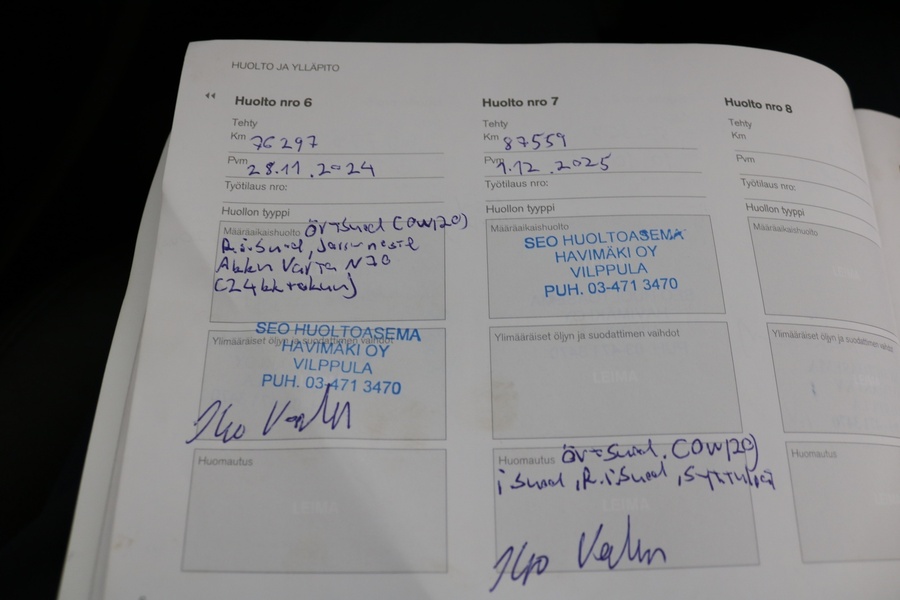 HUOLTO JA YLLÄPITO
Huolto nro 6
Tehty
Km 76297
Pvm 28.11.2024
Työtilaus nro:
Huollon tyyppi
Määräaikaishuolto öv+suod (0W20)
R.i.suod, Jarruneste
Akku Varta N70
(24kk takuu)
Ylimääräiset öljyn ja suodattimen vaihdot
SEO HUOLTOASEMA
HAVIMÄKI OY
VILPPULA
PUH. 03-471 3470
Huomautus
Huolto nro 7
Tehty
Km 87559
Pvm 1.12.2025
Työtilaus nro:
Huollon tyyppi
SEO HUOLTOASEMA
HAVIMÄKI OY
VILPPULA
PUH. 03-471 3470
Ylimääräiset öljyn ja suodattimen vaihdot
LEIMA
Huomautus öv+suod. (0W20)
isuod, R.isuod,
Huolto nro 8
Tehty
Km
Pvm
Työtilaus nro:
Huollon tyyppi
Määräaikaishuolto
Ylimääräiset öljyn ja suodattimen vaihdot
Huomautus